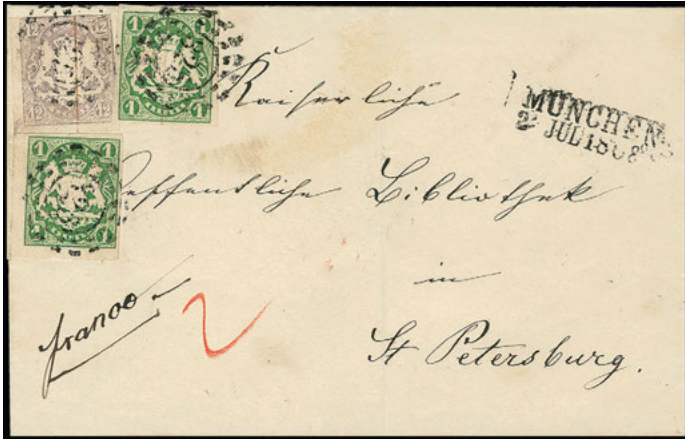 12 12
12 12
1 1
1 1
1 1
1 1
MÜNCHEN
2 JUL 1868
Kaiserliche
oeffentliche Bibliothek
in
St Petersburg.
franco
2